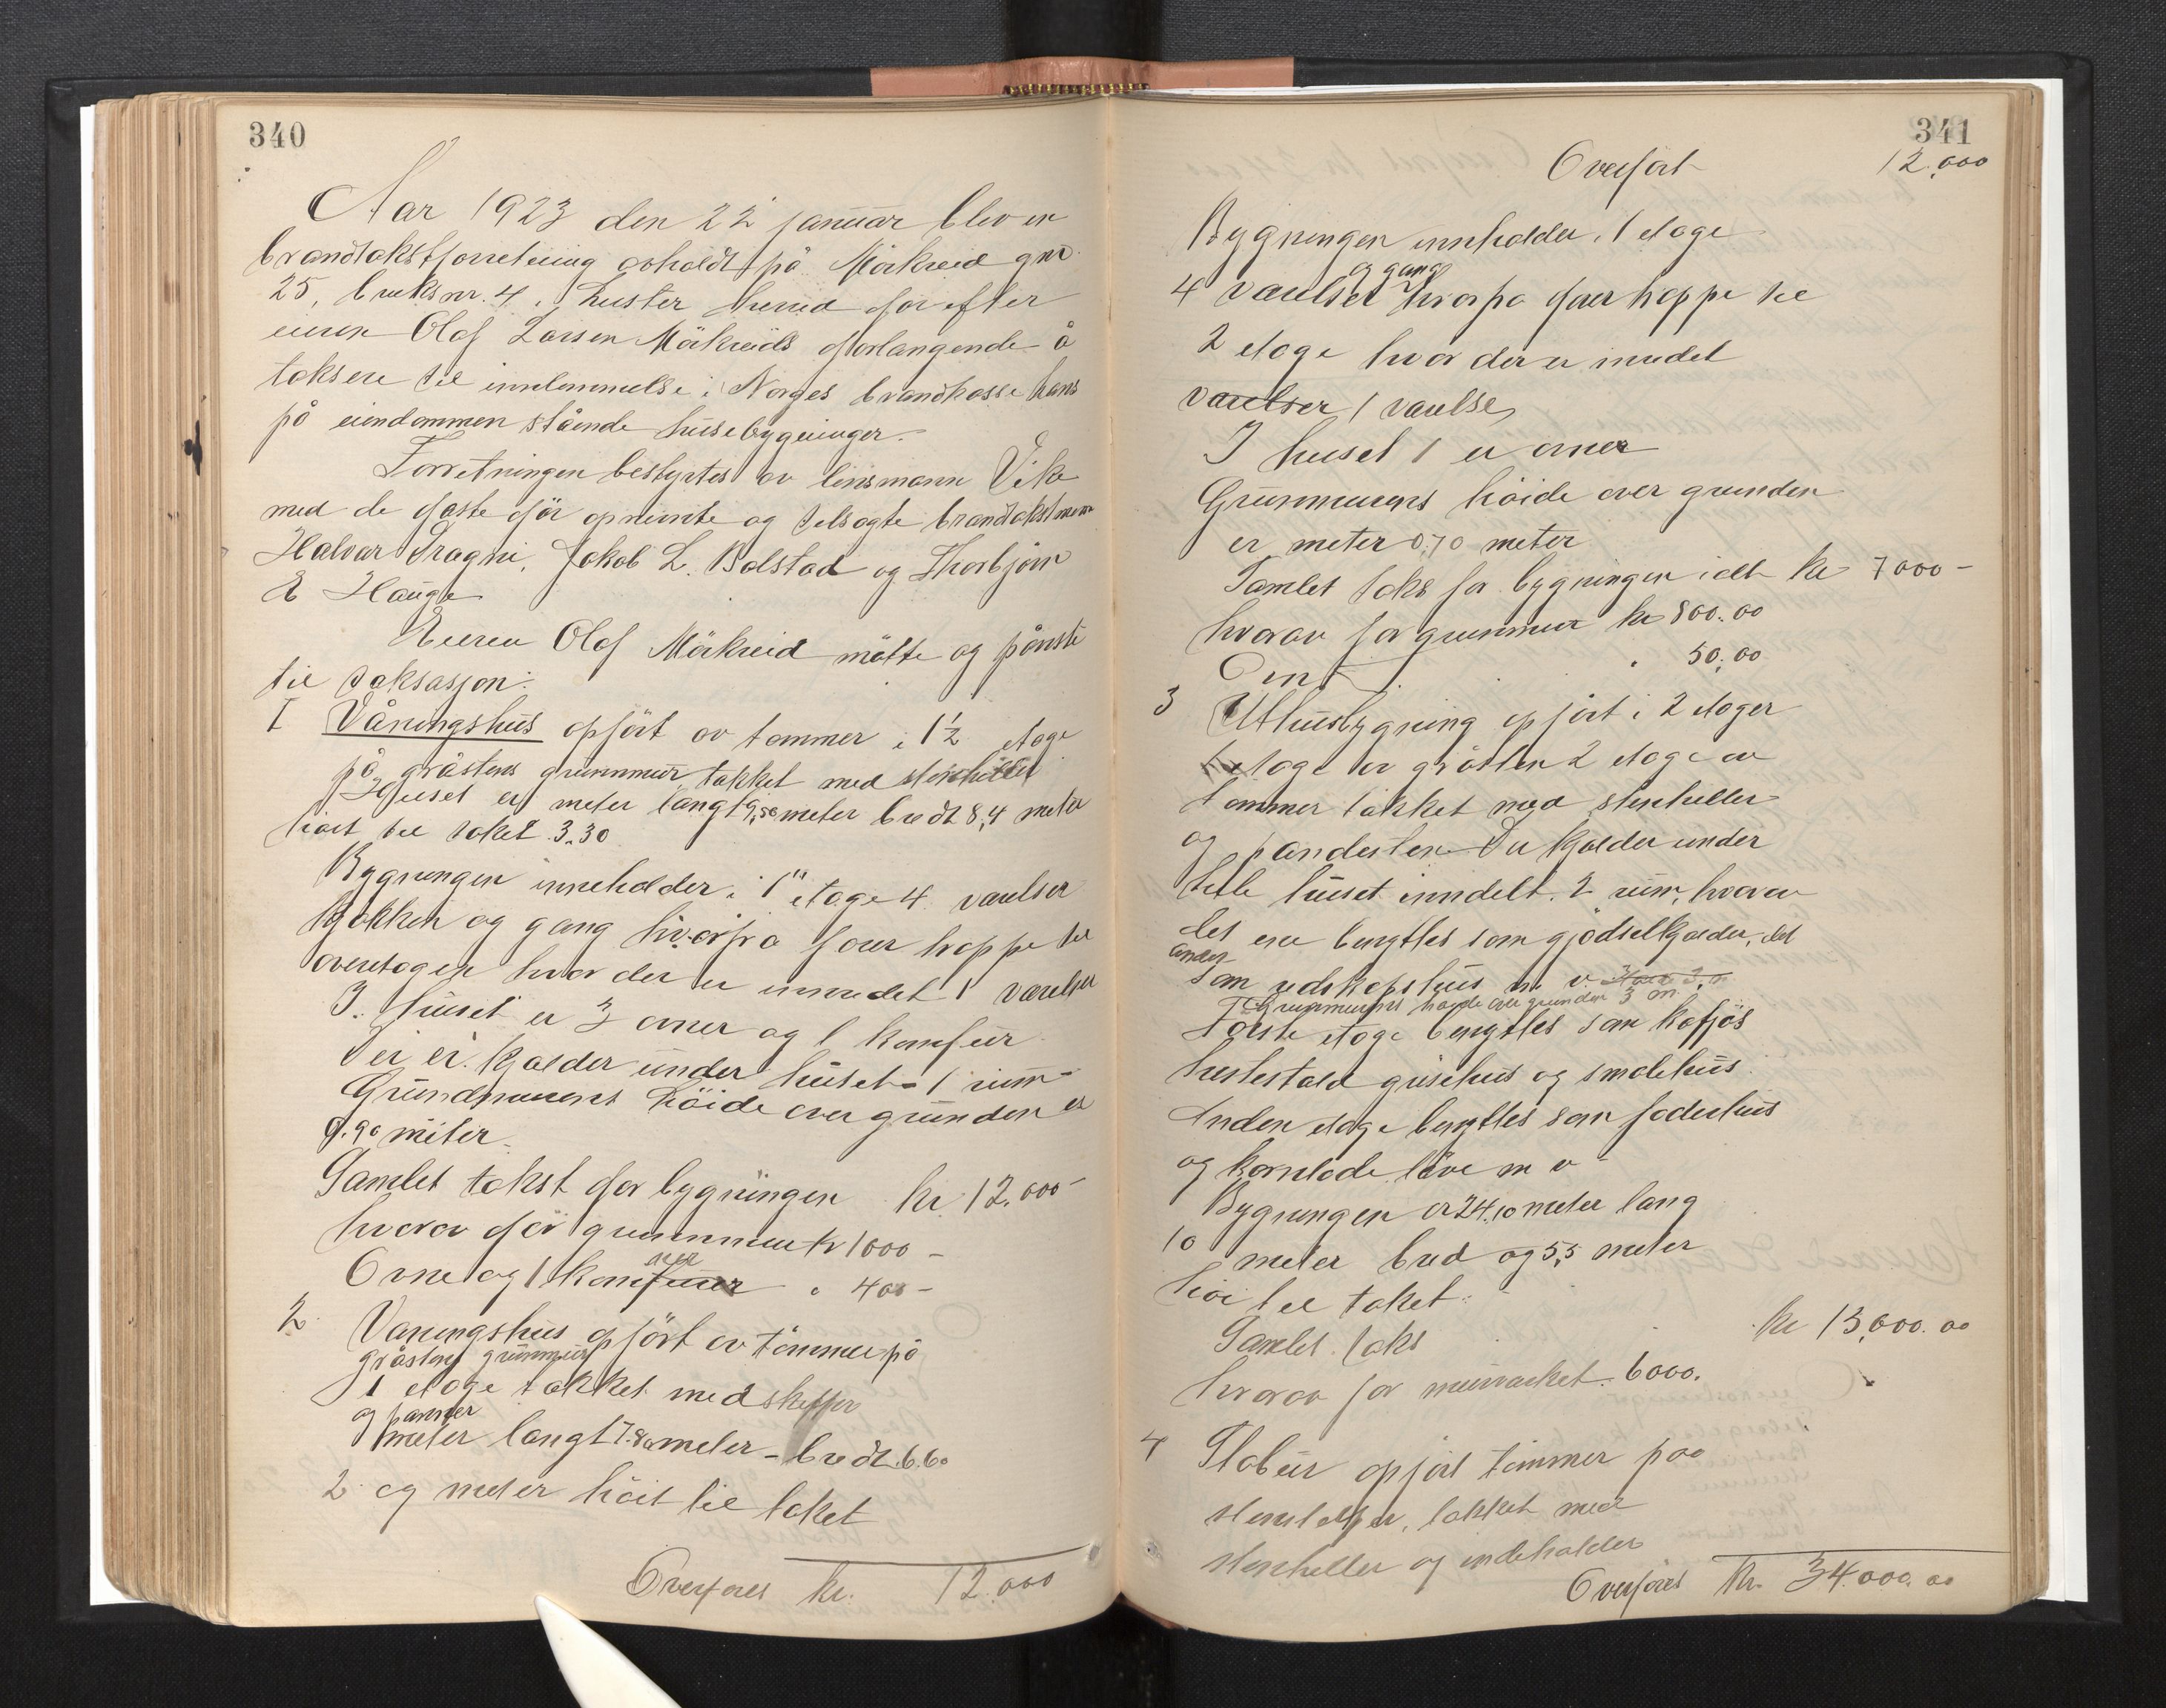 340
Aar 1923 den 22 januar blev en
brandtakstforretning avholdt på Mörkreid gnr.
25, bruksnr. 4, i Luster herred for efter
eieren Olaf Larsen Mörkreids forlangende å
taksere til innlemmelse i Norges brandkasse hans
på eiendommen stående husebygninger.
Forretningen bestyrtes av lensmann Vike
med de faste för opnevnte og tilsagte brandtakstmenn
Halvar Dragni, Jakob L. Bolstad og Thorbjörn
E Hauge
Eieren Olaf Mörkreid mötte og påviste
til taksasjon:
I Våningshus opfört av tømmer i 1½ etage
på gråstens grunnmur, takket med stenheller
Huset er meter langt 9,50 meter bredt 8,4 meter
høit til taket 3.30
Bygningen inneholder i 1ste etage 4 værelser
kjøkken og gang hvorfra fører trappe til
overetagen hvor der er innredet 1 værelser
I huset er 3 ovner og 1 komfur
Der er kjælder under huset - 1 rum -
Grundmurens höide over grunden er
0.90 meter
Samlet takst for bygningen kr 12.000 -
hvorav for grunnmur kr 1000 -
Ovne og 1 komfuer " 400 -
2 Våningshus opfört av tömmer på
gråstens grunnmur
1 etage takket med skiffer
og panner
meter langt 7.80 meter - bredt 6.60
2 og meter höit til taket
Overføres kr. 12.000
341
Overfört 12.000
Bygningen inneholder i 1 etage
og gang
4 værelser hvorfra fører trappe til
2 etage hvor der er innredet
værelser 1 værelse
I huset 1 er ovner
Grunnmurens höide over grunden
er meter 0,70 meter
Samlet takst for bygningen ialt kr 7000 -
hvorav for grunnmur kr 800.00
Ovn " 50.00
3 Uthusbygning opfört i 2 etager
1 etage av gråsten 2 etage av
tømmer takket med stenheller
og pandesten Der kjælder under
hele huset inndelt i 2 rum, hvorav
det ene benyttes som gjödselkjælder, det
andet
som redskapshus m. v.
Grunnmurens høide over grunden 3 m.
Første etage benyttes som kofjøs
hestestald grisehus og smalehus
Anden etage benyttes som foderhus
og kornlade löve m v -
Bygningen er 24,10 meter lang
10 meter bred og 5,5 meter
höi til taket.
Samlet takst kr 15,000.00
hvorav for murværket 6000.
4 Stabur opfört tömmer paa
stenstolper, takket med
stenheller og indeholder
Overføres kr. 34.000.00